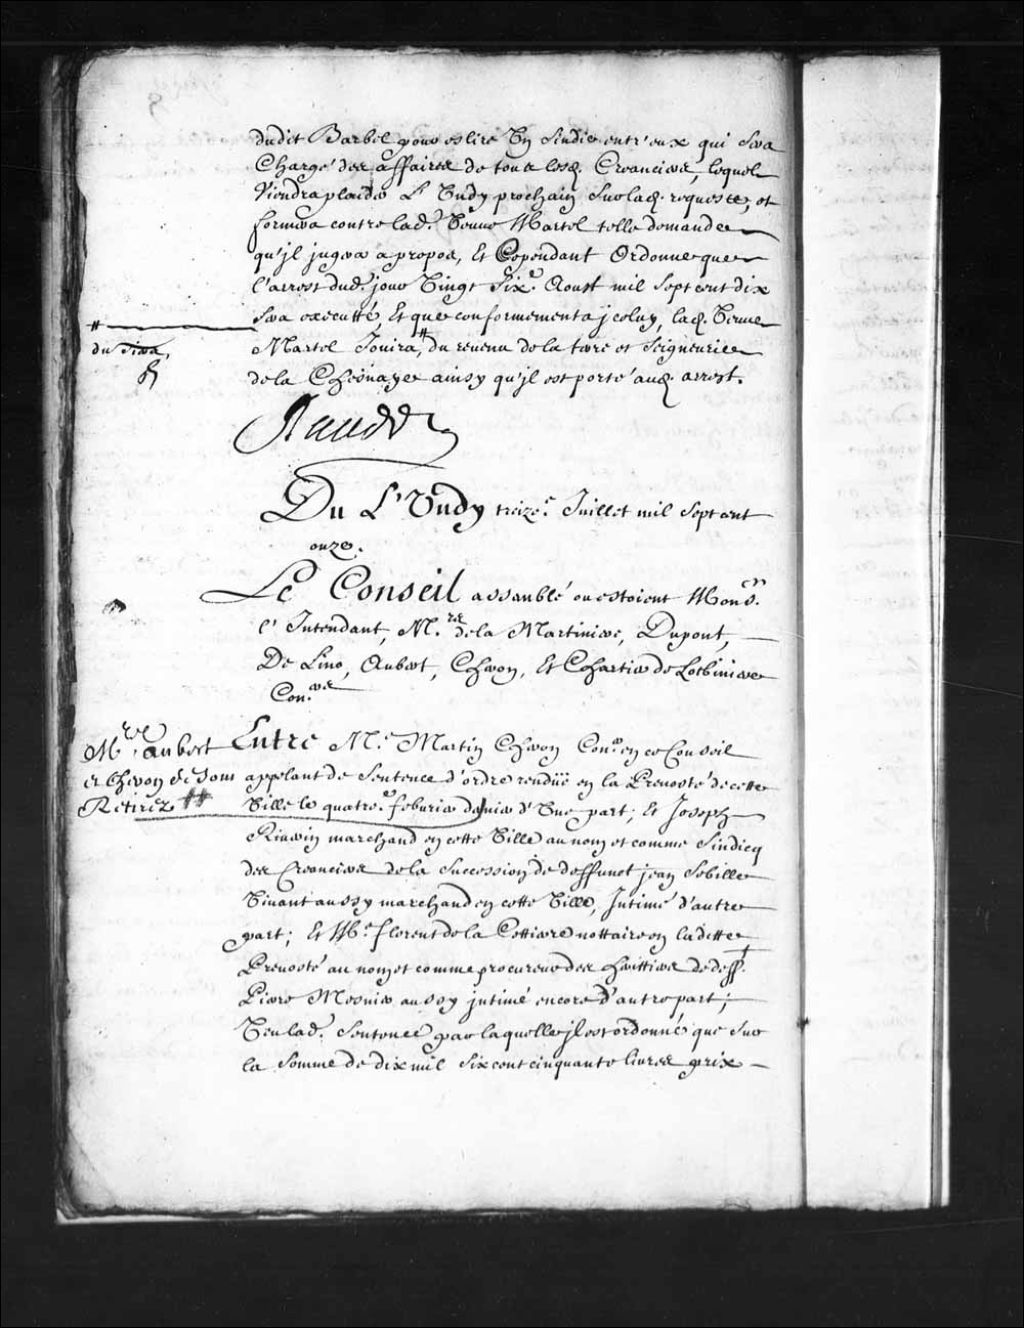 dudit Barbel pour eslire Un Sindic entr'eux qui sera
Chargé des affaires de tous lesd. Creanciers, lequel
Viendra plaider L'Undy prochain Sur lad. requeste, et
formera contre lad. Veuve Martel telle demande
qu'jl jugera apropos, Et Cependant Ordonne que
l'arrest dud. jour Vingt Six.e Aoust mil Sept cent dix
Sera executté, Et que conformement a jceluy, lad. Veuve
# du Sixa,
Martel Jouira,# du revenu de la terre et Seigneurie
de la Chesnaye ainsy qu'jl est porté aud. arrest.
Raudot
Du L'Undy treize.e Juillet mil Sept cent
onze.
Le Conseil assamblé ou estoient Mons.r
l'Intendant, M.rs de la Martiniere, Dupont,
De Lino, Aubert, Cheron, Et Chartier de Lotbiniere
Con.ers
M.rs Aubert
et Cheron Se Sont
Retirez ##
Entre M.e Martin Cheron Con.er en ce Conseil
appelant de Sentence d'ordre rendüe en la Prevosté de cette
Ville le quatre.e febvrier dernier d'Une part; Et Joseph
Riverin marchand en cette Ville au nom et comme Sindicq
des Creanciers de la Succession de deffunct jean Sebille
Vivant aussy marchand en cette Ville, Intimé d'autre
part; Et M.e florent de la Cettiere nottaire en laditte
Prevosté au nom et comme procureur des heritiers de deff.t
Pierre Mesnier aussy jntimé encore d'autre part;
Veu lad. Sentence par laquelle jl est ordonné que Sur
la Somme de dix mil Six cent cinquante livres prix